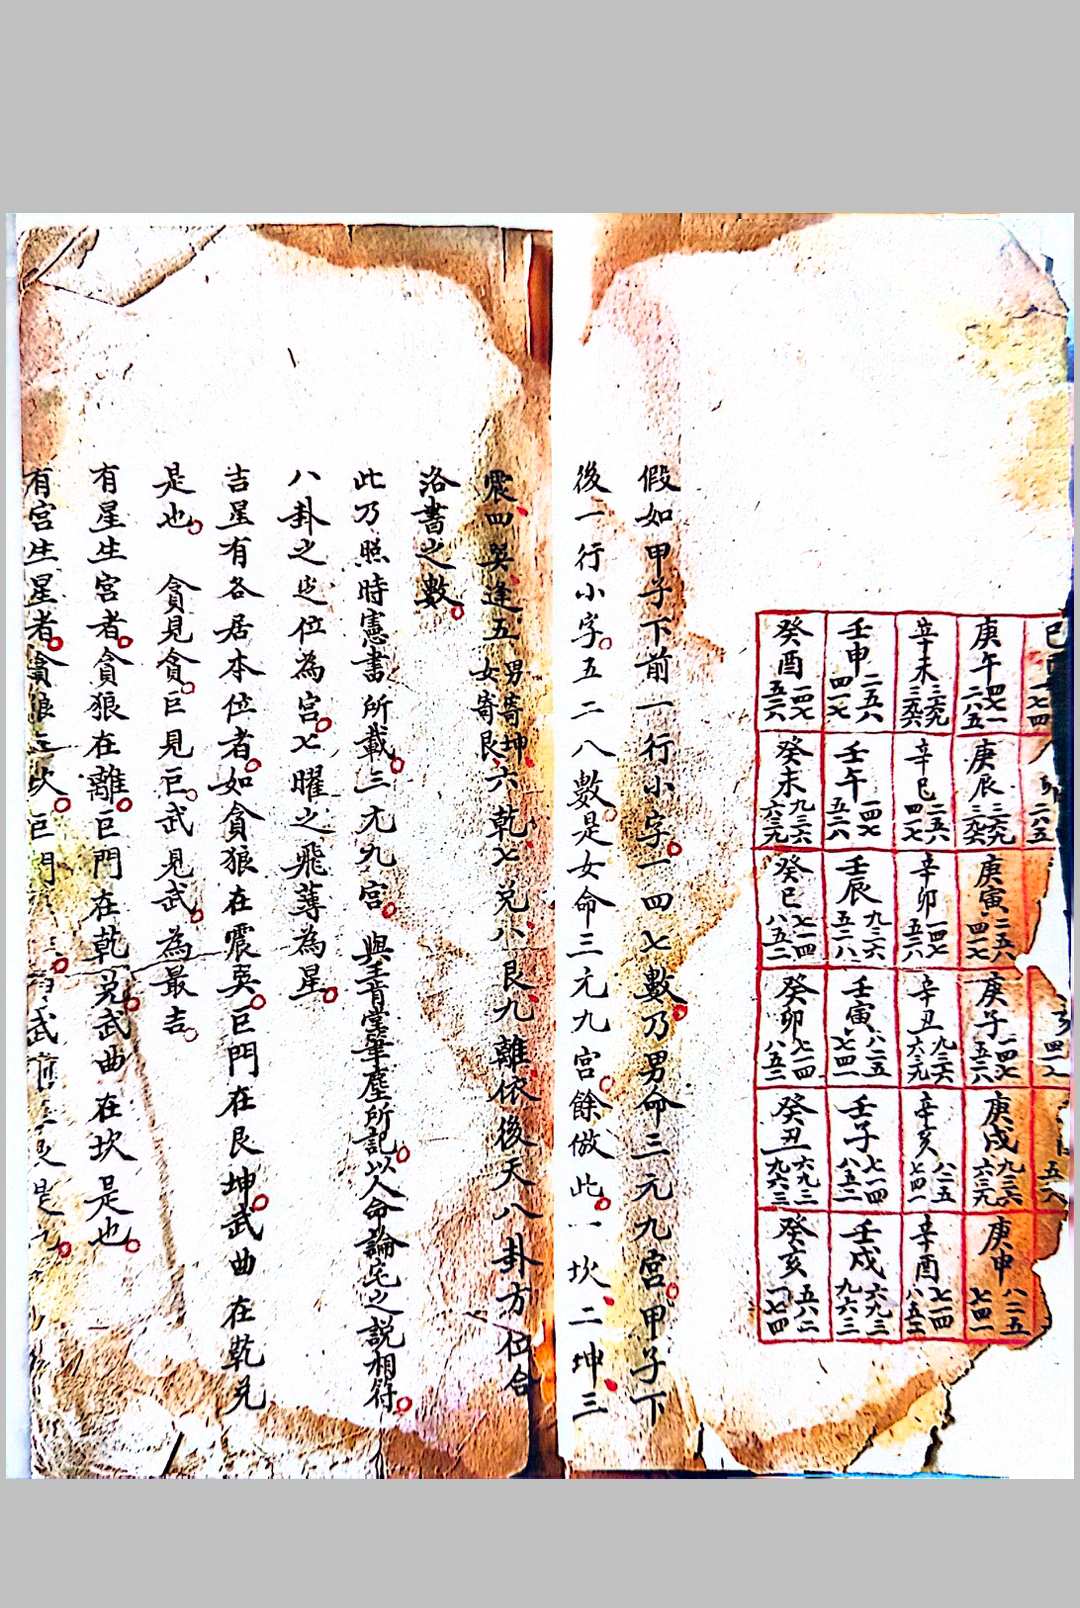 庚午 四七一 二八五
庚辰 三六九 三九六
庚寅 二五八 四一七
庚子 一四七 五二八
庚戌 九三六 六三九
庚申 八二五 七四一
辛未 三六九 三九六
辛巳 二五八 四一七
辛卯 一四七 五二八
辛丑 九三六 六三九
辛亥 八二五 七四一
辛酉 七一四 八五二
壬申 二五八 四一七
壬午 一四七 五二八
壬辰 九三六 五二八
壬寅 八二五 七四一
壬子 七一四 八五二
壬戌 六九三 九六三
癸酉 一四七 五二八
癸未 九三六 六三九
癸巳 七一四 八五二
癸卯 七一四 八五二
癸丑 六九三 九六三
癸亥 五八二 一七四
假如甲子下前一行小字。一四七數乃男命三元九宮。甲子下
後一行小字。五二八數。是女命三元九宮。餘倣此。一坎、二坤、三
震、四巽、逢五男寄坤、女寄艮、六乾、七兌、八艮、九離、依後天八卦方位合
洛書之數。
此乃照時憲書所載。三元九宮。與青堂筆塵所記。以人命論宅之說相符。
八卦之定位為宮。七曜之飛薄為星。
吉星有各居本位者。如貪狼在震巽。巨門在艮坤。武曲在乾兌
是也。貪見貪。巨見巨。武見武。為最吉。
有星生宮者。貪狼在離。巨門在乾兌。武曲在坎是也。
有宮生星者。貪狼在坎。巨門